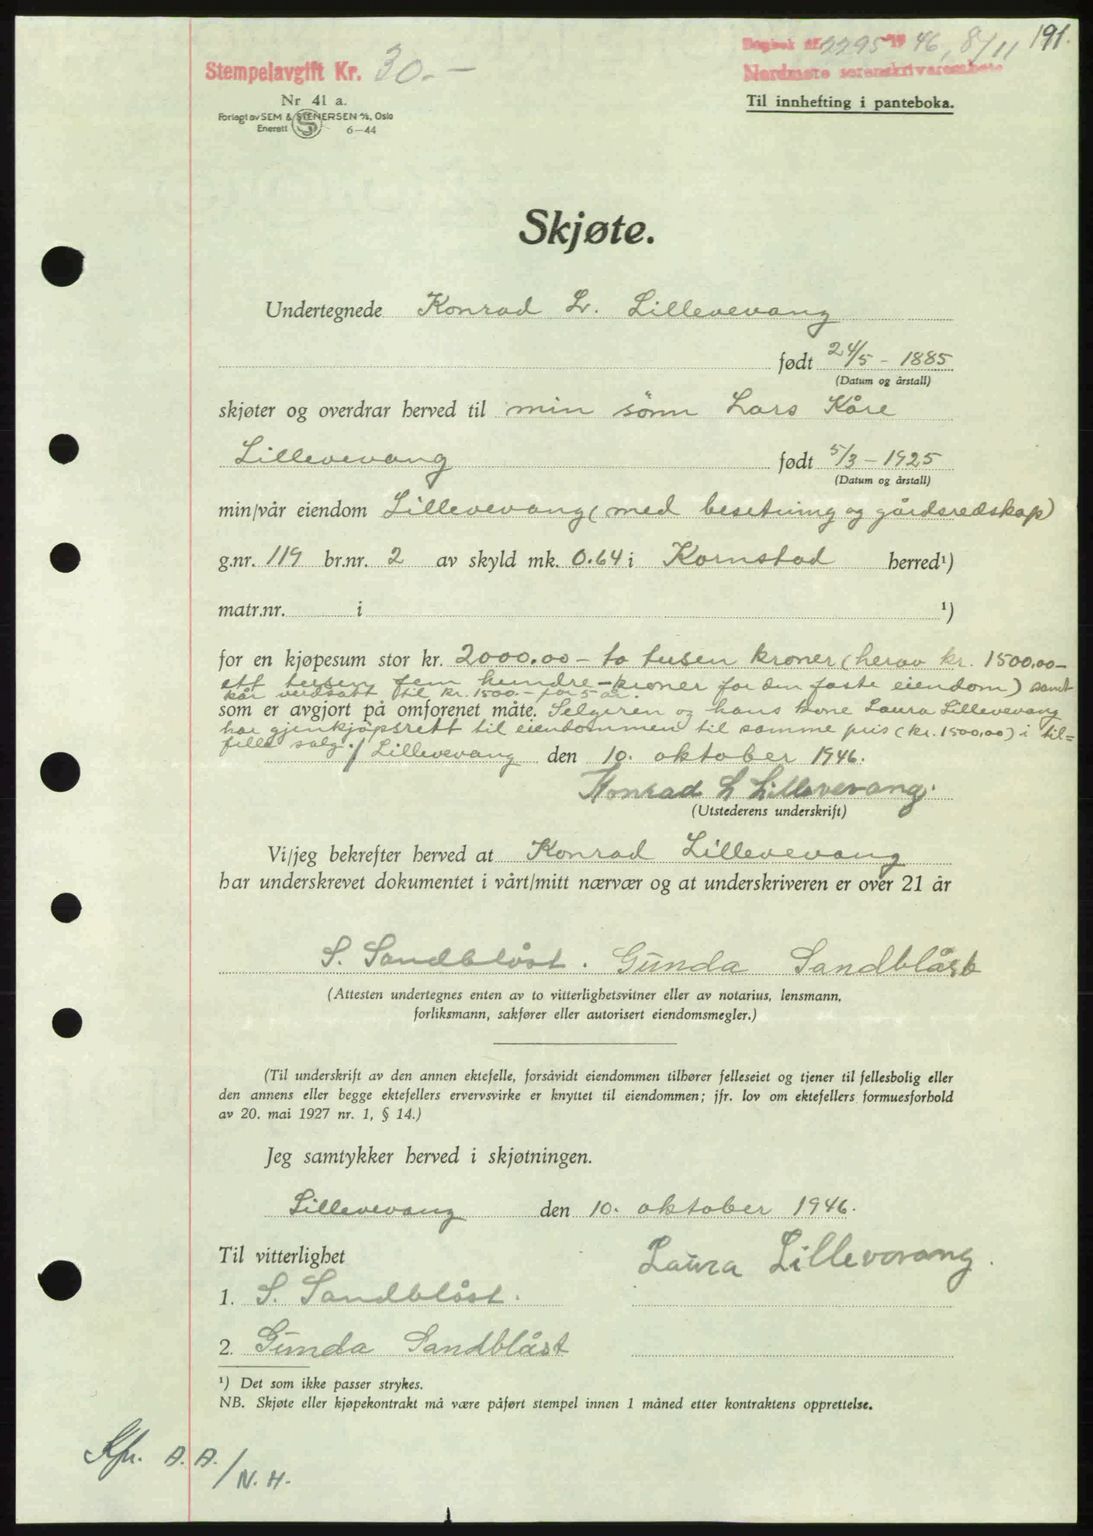 191.
Dagbok nr. 2295 19 46, 8/11
Stempelavgift Kr. 30.—
Nordmøre sorenskriverembete
Nr 41 a.
Til innhefting i panteboka.
Forlagt av SEM & STENERSEN A/S, Oslo
Enerett S 6-44
Skjøte.
Undertegnede Konrad Lr. Lillevevang
født 24/5 - 1885
(Datum og årstall)
skjøter og overdrar herved til min sönn Lars Kåre
Lillevevang født 5/3 - 1925
(Datum og årstall)
min/vår eiendom Lillevevang (med besetning og gårdsredskap)
g.nr. 119 br.nr. 2 av skyld mk. 0.64 i Kornstad herred¹)
matr.nr. i ¹)
for en kjøpesum stor kr. 2000.00 - to tusen kroner (herav kr. 1500.00-
ett tusen fem hundre - kroner for den faste eiendom) samt
kår verdsatt til kr. 1500.- for 5 år.
som er avgjort på omforenet måte. Selgeren og hans kone Laura Lillevevang
har gjenkjöpsrett til eiendommen til samme pris (kr. 1500,00) i til=
felle salg./ Lillevevang den 10. oktober 1946.
Konrad L Lillevevang.
(Utstederens underskrift)
Vi/jeg bekrefter herved at Konrad Lillevevang
har underskrevet dokumentet i vårt/mitt nærvær og at underskriveren er over 21 år
S. Sandblåst. Gunda Sandblåst
(Attesten undertegnes enten av to vitterlighetsvitner eller av notarius, lensmann,
forliksmann, sakfører eller autorisert eiendomsmegler.)
(Til underskrift av den annen ektefelle, forsåvidt eiendommen tilhører felleseiet og tjener til fellesbolig eller
den annens eller begge ektefellers ervervsvirke er knyttet til eiendommen; jfr. lov om ektefellers formuesforhold
av 20. mai 1927 nr. 1, § 14.)
Jeg samtykker herved i skjøtningen.
Lillevevang den 10. oktober 1946.
Til vitterlighet
Laura Lillevevang.
1. S. Sandblåst.
2. Gunda Sandblåst
¹) Det som ikke passer strykes.
NB. Skjøte eller kjøpekontrakt må være påført stempel innen 1 måned etter kontraktens opprettelse.
A. A./N. H.